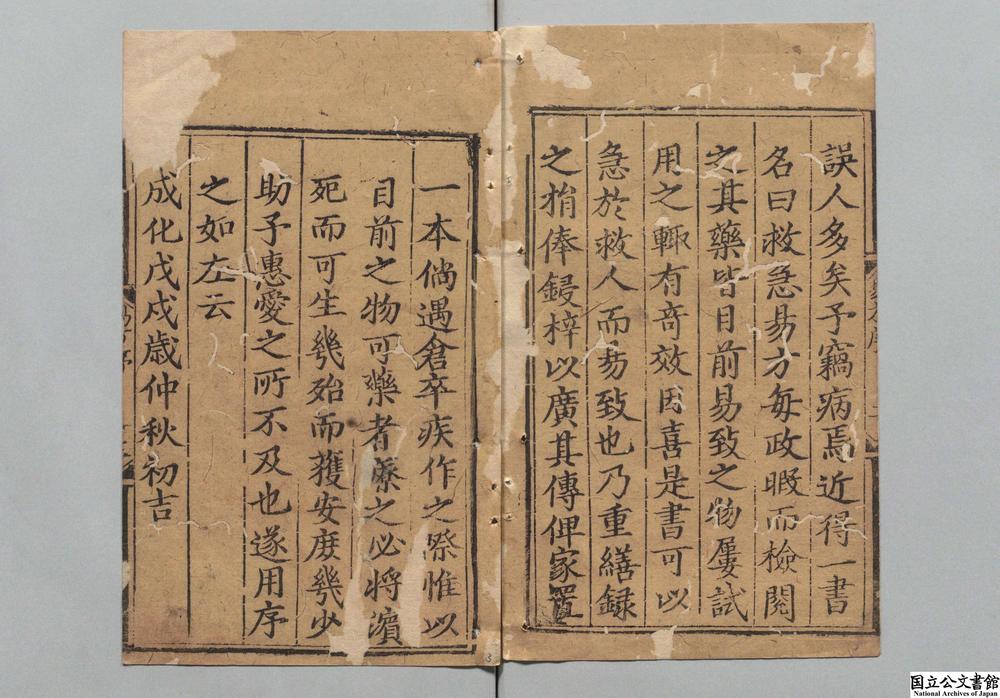 誤人多矣予竊病焉近得一書
名曰救急易方毎政暇而檢閱
之其藥皆目前易致之物屢試
用之輙有竒效因喜是書可以
急於救人而易致也乃重繕録
之捐俸鋟梓以廣其傳俾家置
一本倘遇倉卒疾作之際惟以
目前之物可藥者療之必將濵
死而可生幾殆而獲安庻幾少
助予惠愛之所不及也遂用序
之如左云
成化戊戍歳仲秋初吉
国立公文書館
National Archives of Japan